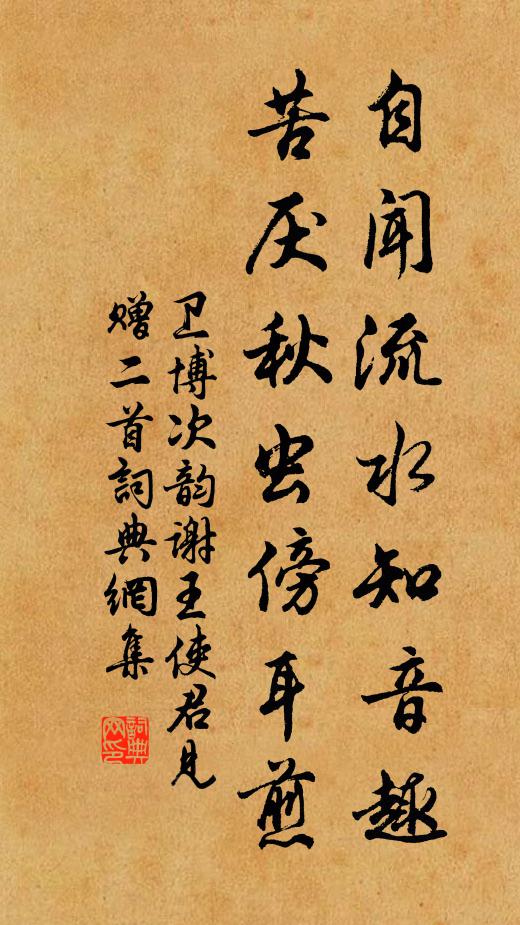 自闻流水知音趣
苦厌秋虫傍耳煎
卫博次韵谢王使君见
赠二首詞典網集
詞典网印